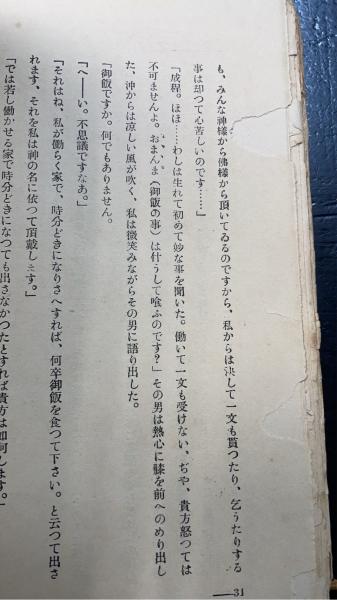 も、みんな神様から佛様から頂いてゐるのですから、私からは決して一文も貰つたり、乞うたりする
事は却つて心苦しいのです……」
「成程。ほほ……わしは生れて初めて妙な事を聞いた。働いて一文も受けない、ぢや、貴方怒つては
不可ませんよ。おまんま（御飯の事）は什うして喰ふのです？」その男は熱心に膝を前へのめり出し
た、沖からは涼しい風が吹く、私は微笑みながらその男に語り出した。
「御飯ですか。何でもありません。
「へ――い。不思議ですなあ。」
「それはね、私が働らく家で、時分どきになりさへすれば、何卒御飯を食つて下さい。と云つて出さ
れます、それを私は神の名に依つて頂戴します。」
「では若し働かせる家で時分どきになつても出さなかつたとすれば貴方は如何します。」
31